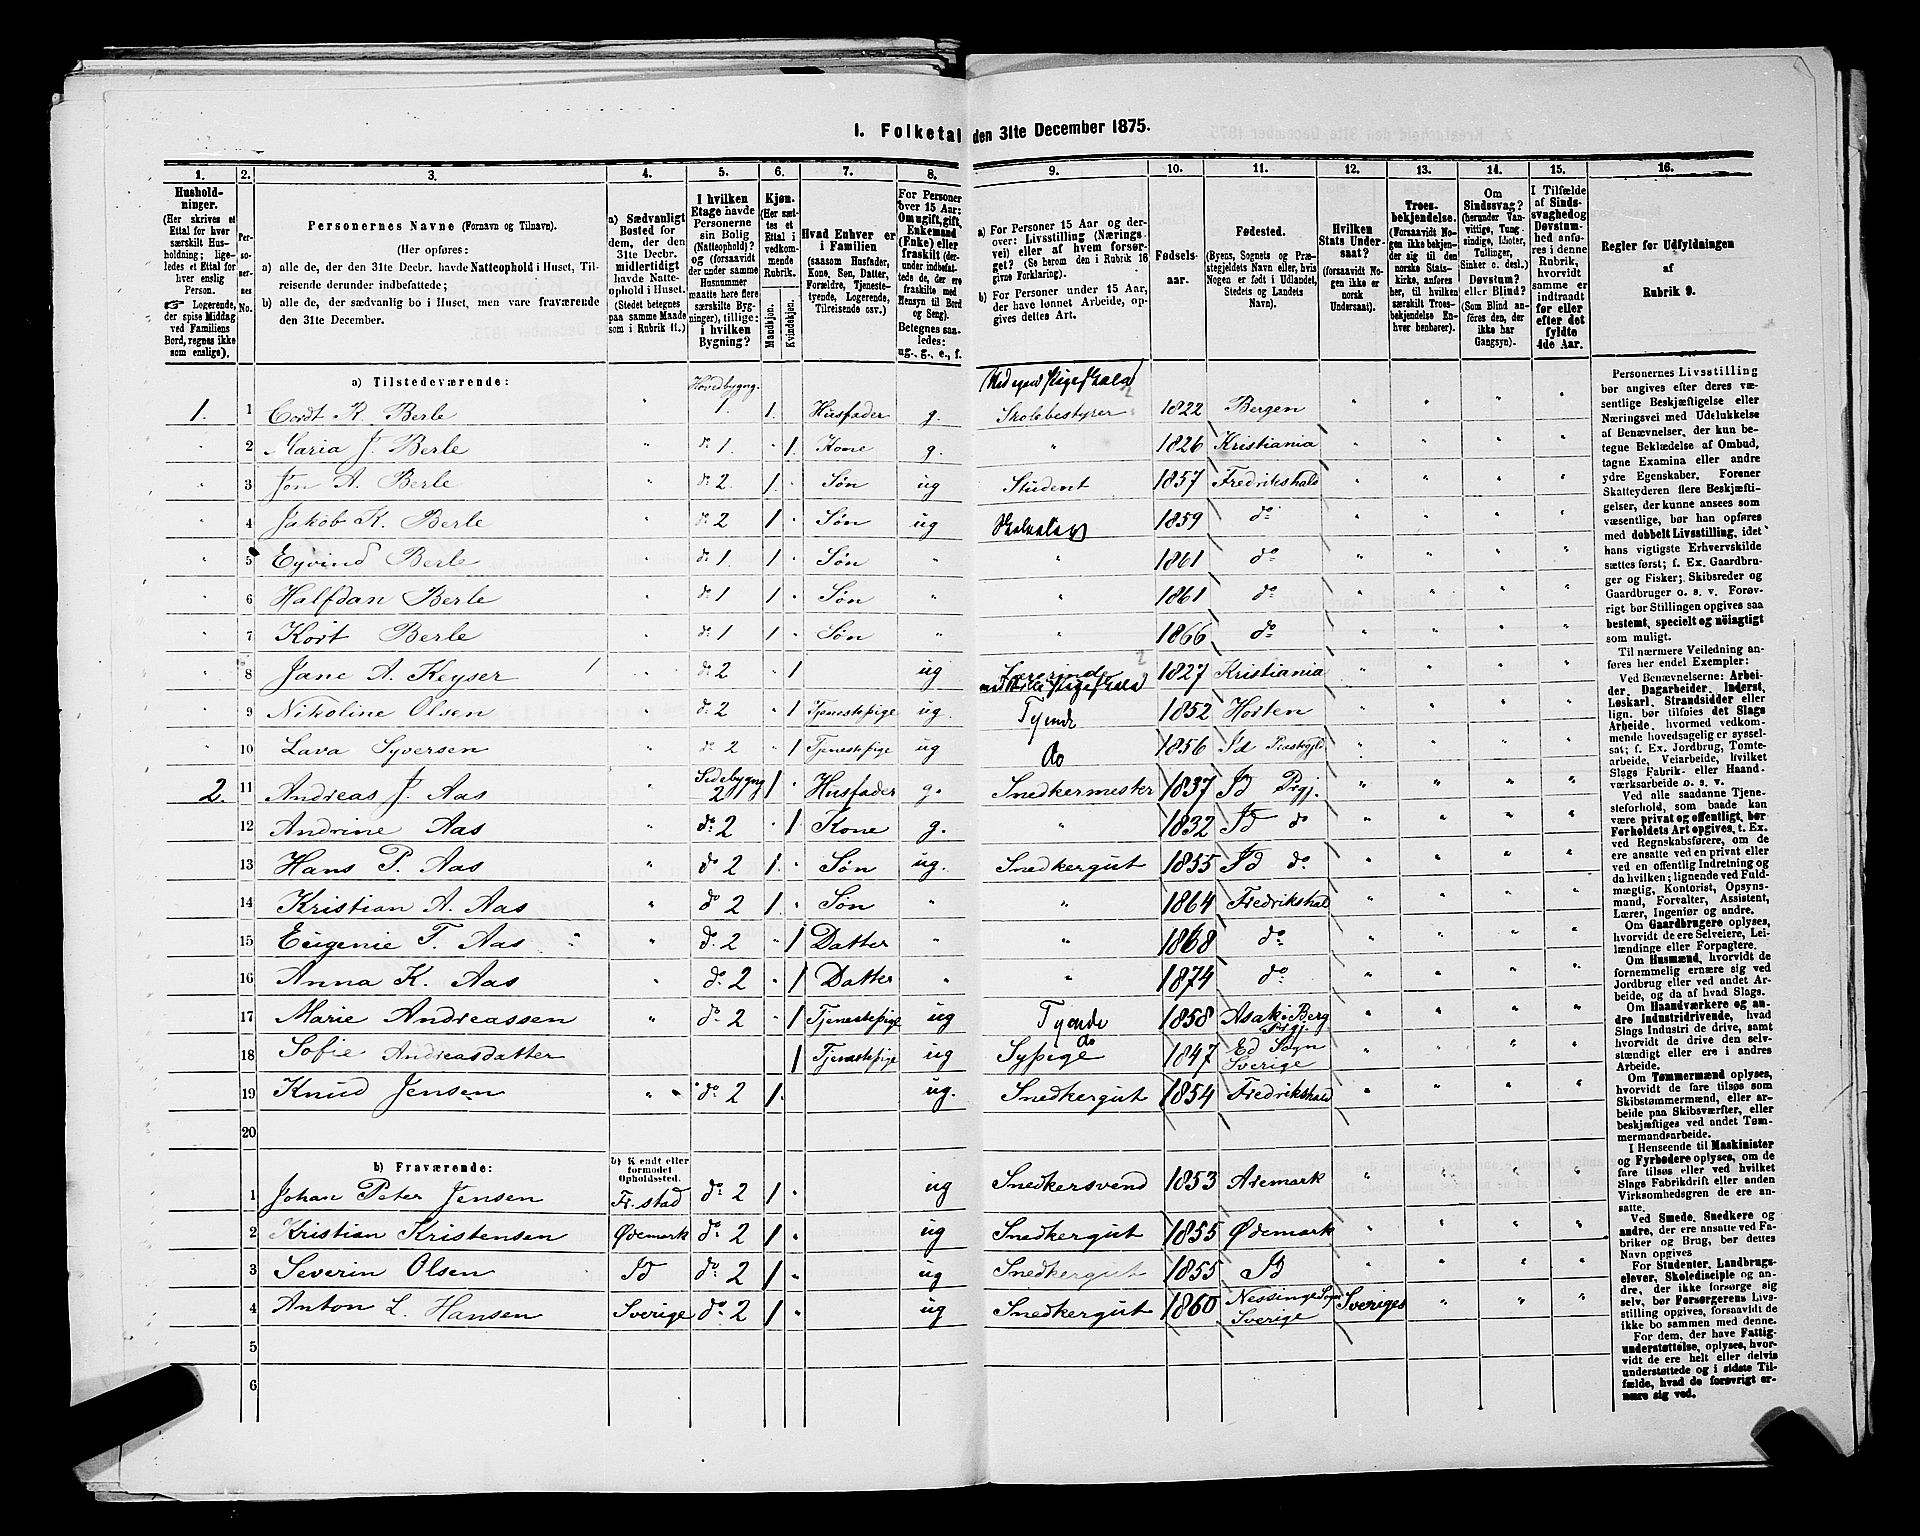 1. Folketal den 31te December 1875.
1. 2. 3. 4. 5. 6. 7. 8. 9. 10. 11. 12. 13. 14. 15. 16.
Husholdninger. (Her skrives et Ettal for hver særskilt Husholdning; ligeledes et Ettal for hver enslig Person. Logerende, der spise Middag ved Familiens Bord, regnes ikke som enslige).
Personernes No.
Personernes Navne (Fornavn og Tilnavn).
(Her opføres:
a) alle de, der den 31te Decbr. havde Natteophold i Huset, Tilreisende derunder indbefattede;
b) alle de, der sædvanlig bo i Huset, men vare fraværende den 31te December.
a) Sædvanligt Bosted for dem, der den 31te Decbr. midlertidigt havde Natteophold i Huset. (Stedet betegnes paa samme Maade som i Rubrik 11.)
I hvilken Etage havde Personerne sin Bolig (Natteophold)? og (forsaavidt der under samme Husnummer maatte høre flere særskilte Bygninger), tillige: i hvilken Bygning?
Kjøn. (Her sættes et Ettal i vedkommende Rubrik. Mandkjøn. Kvindekjøn.
Hvad Enhver er i Familien (saasom Husfader, Kone, Søn, Datter, Forældre, Tjenestetyende, Logerende, Tilreisende osv.)
For Personer over 15 Aar: Om ugift, gift, Enkemand (Enke) eller fraskilt (derunder indbefattede de, der ere fraskilte med Hensyn til Bord og Seng). Betegnes saaledes: ug., g., e., f.
a) For Personer 15 Aar og derover: Livsstilling (Næringsvei) eller af hvem forsørget? (Se herom den i Rubrik 16 givne Forklaring).
b) For Personer under 15 Aar, der have lønnet Arbeide, opgives dettes Art.
Fødselsaar.
Fødested. (Byens, Sognets og Præstegjeldets Navn eller, hvis Nogen er født i Udlandet, Stedets og Landets Navn).
Hvilken Stats Undersaat? (forsaavidt Nogen ikke er norsk Undersaat).
Troesbekjendelse. (Forsaavidt Nogen ikke bekjender sig til den norske Statskirke, anføres her, til hvilken særskilt Troesbekjendelse Enhver henhører).
Om Sindssvag? (herunder Vanvittige, Tungsindige, Idioter, Tullinger, Sinker o. desl.) Døvstum? eller Blind? (Som Blind anføres den, der ikke har Gangsyn).
I Tilfælde af Sindssvaghed og Døvstumhed anføres i denne Rubrik, hvorvidt samme er indtraadt før eller efter det fyldte 4de Aar.
Regler for Udfyldningen af Rubrik 9.
a) Tilstedeværende:
1. 1 Cordt K. Berle " Hovedbygng. 1. 1. Husfader g. Med egen Pigeskole Skolebestyrer 1822 Bergen
2 Maria J. Berle " do 1. 1. Kone g. " 1826 Kristiania
3 Jon A. Berle " do 2. 1. Søn ug Student 1857 Fredrikshald
4 Jakob K. Berle " do 2 1 Søn ug Skoleelev 1859 do
5 Eyvind Berle do 1. 1 Søn " 1861 do
6 Halfdan Berle do 1 1 Søn " " 1861 do
7 Kort Berle do 1 1 Søn " " 1866 do
8 Jane A. Keyser do 2 1 ug Lærerinde 1827 Kristiania
9 Nikoline Olsen do 2 1 Tjenestepige ug. Tyende 1852 Horten
10 Lava Syversen do 2 1 Tjenestepige ug do 1856 Id Præstegjld
2. 11 Andreas J. Aas " Sidebygng 2 1 Husfader g. Snedkermester 1837 Id Prgj.
12 Andrine Aas " do 2 1. Kone g. " 1832 Id do
13 Hans P. Aas " do 2 1. Søn ug. Snedkergut 1855 Id do
14 Kristian A. Aas " do 2 1. Søn " 1864 Fredrikshald
15 Eugenie T. Aas " do 2 1 Datter " " 1868 do
16 Anna K. Aas " do 2 1 Datter " " 1874 do
17 Marie Andreassen " do 2 1 Tjenestepige ug Tyende 1858 Asak i Berg Prgj.
18 Sofie Andreasdatter 1 Tjenestepige ug Sypige do 1847 Ed Sogn Sverige
19 Knud Jensen " do 2 1. ug. Snedkergut 1854 Fredrikshald
20
b) Fraværende: b) Kendt eller formodet Opholdssted.
1 Johan Peter Jensen Fr.stad do 2 1 ug Snedkersvend 1853 Aremark
2 Kristian Kristensen Ødemark do 2 1 ug Snedkergut 1855 Ødemark
3 Severin Olsen Id do 2 1 " ug Snedkergut 1855 Id
4 Anton L. Hansen Sverige do 2 1 " ug Snedkergut 1860 Nessinge Sogn Sverige Sveriges
5
6
Personernes Livsstilling bør angives efter deres væsentlige Beskjæftigelse eller Næringsvei med Udelukkelse af Benævnelser, der kun betegne Beklædelse af Ombud, tagne Examina eller andre ydre Egenskaber. Forener Skatteyderen flere Beskjæftigelser, der kunne ansees som væsentlige, bør han opføres med dobbelt Livsstilling, idet hans vigtigste Erhvervskilde sættes først; f. Ex. Gaardbruger og Fisker; Skibsreder og Gaardbruger o. s. v. Forøvrigt bør Stillingen opgives saa bestemt, specielt og nöiagtigt som muligt.
Til nærmere Veiledning anføres her endel Exempler:
Ved Benævnelserne: Arbeider, Dagarbeider, Inderst, Løskarl, Strandsidder eller lign. bør tilføies det Slags Arbeide, hvormed vedkommende hovedsagelig er sysselsat; f. Ex. Jordbrug, Tomtearbeide, Veiarbeide, hvilket Slags Fabrik- eller Haandværksarbeide o. s. v.
Ved alle saadanne Tjenesteforhold, som baade kan være privat og offentligt, bør Forholdets Art opgives, t. Ex. ved Regnskabsførere, om de ere ansatte ved en privat eller ved en offentlig Indretning og da hvilken; lignende ved Fuldmægtig, Kontorist, Opsynsmand, Forvalter, Assistent, Lærer, Ingeniør og andre.
Om Gaardbrugere oplyses, hvorvidt de ere Selveiere, Leilændinge eller Forpagtere.
Om Husmænd, hvorvidt de fornemmelig ernære sig ved Jordbrug eller ved andet Arbeide, og da af hvad Slags.
Om Haandværkere og andre Industridrivende, hvad Slags Industri de drive, samt hvorvidt de drive den selvstændigt eller ere i andres Arbeide.
Om Tømmermænd oplyses, hvorvidt de fare tilsøs som Skibstømmermænd, eller arbeide paa Skibsværfter, eller beskjæftiges ved andet Tømmermandsarbeide.
I Henseende til Maskinister og Fyrbødere oplyses, om de fare tilsøs eller ved hvilket Slags Fabrikdrift eller anden Virksomhedsgren de ere ansatte.
Ved Smede, Snedkere og andre, der ere ansatte ved Fabriker og Brug, bør dettes Navn opgives
For Studenter, Landbrugselever, Skoledisciple og andre, der ikke forsørge sig selv, bør Forsørgerens Livsstilling opgives, forsaavidt de ikke bo sammen med denne.
For dem, der have Fattigunderstøttelse, oplyses, hvorvidt de ere helt eller delvis understøttede og i sidste Tilfælde, hvad de forøvrigt ernære sig ved.